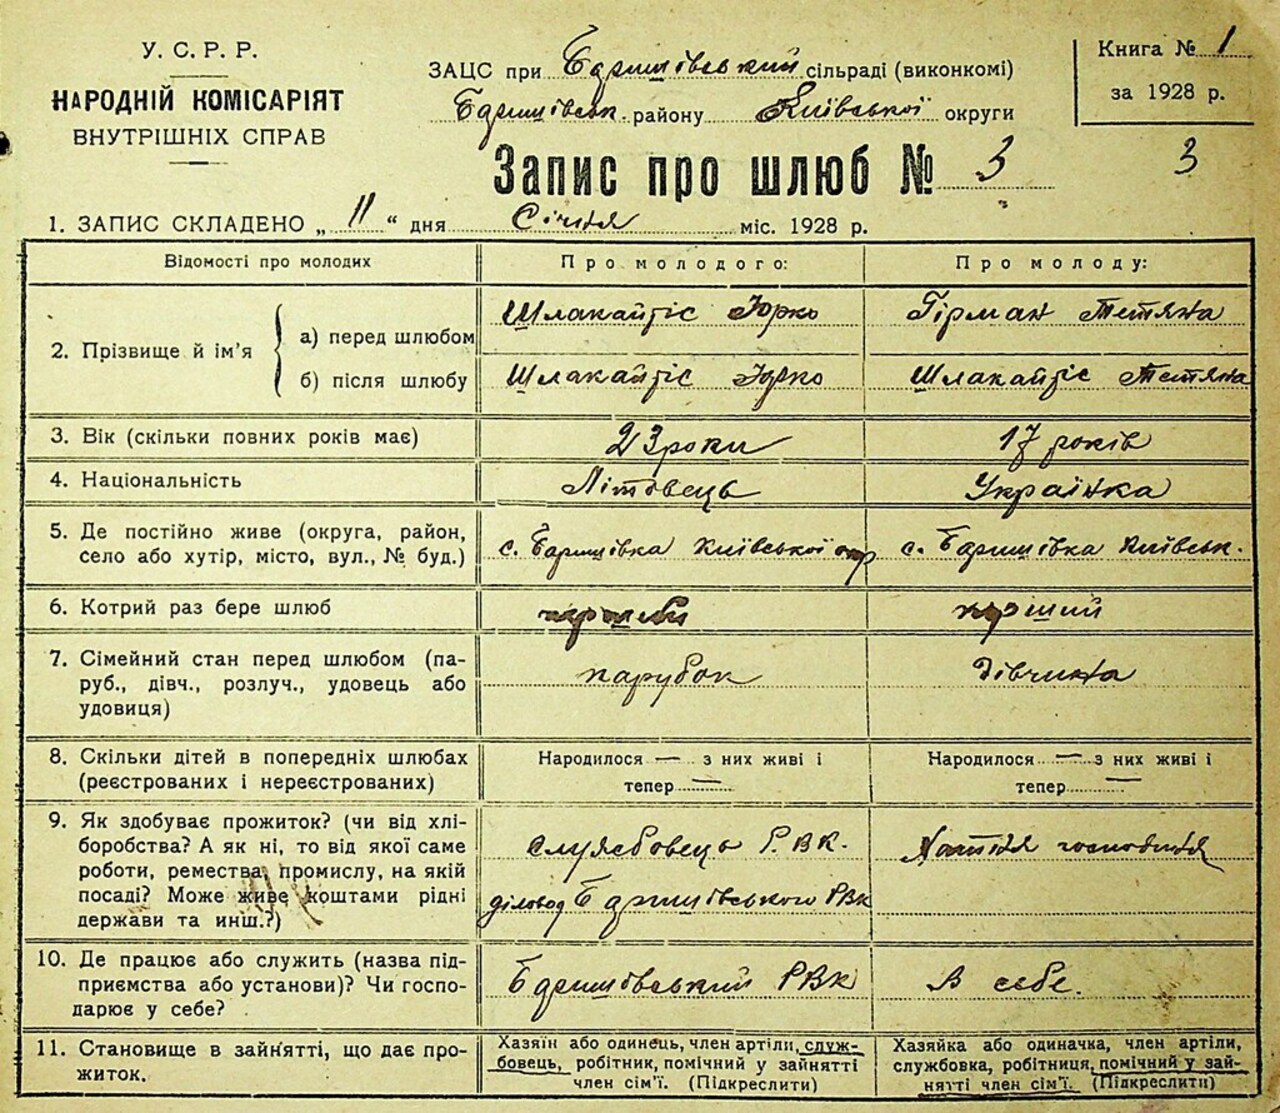 У. С. Р. Р.
НАРОДНІЙ КОМІСАРІЯТ
ВНУТРІШНІХ СПРАВ
ЗАЦС при Баришівський сільраді (виконкомі)
Баришівськ. району Київської округи
Книга № 1
за 1928 р.
Запис про шлюб № 3
3
1. ЗАПИС СКЛАДЕНО „ 11 “ дня Січня міс. 1928 р.
Відомості про молодих
Про молодого:
Про молоду:
2. Прізвище й ім’я
а) перед шлюбом
Шлакайтіс Юрко
Гірман Тетяна
б) після шлюбу
Шлакайтіс Юрко
Шлакайтіс Тетяна
3. Вік (скільки повних років має)
23 роки
17 років
4. Національність
Літовець
Українка
5. Де постійно живе (округа, район,
село або хутір, місто, вул., № буд.)
с. Баришівка Київської окр
с. Баришівка Київськ.
6. Котрий раз бере шлюб
перший
7. Сімейний стан перед шлюбом (па-
руб., дівч., розлуч., удовець або
удовиця)
парубок
дівчина
8. Скільки дітей в попередніх шлюбах
(реєстрованих і нереєстрованих)
Народилося — з них живі і
тепер —
Народилося — з них живі і
тепер —
9. Як здобуває прожиток? (чи від хлі-
боробства? А як ні, то від якої саме
роботи, ремества, промислу, на якій
посаді? Може живе коштами рідні
держави та инш.?)
службовець Р.В.К.
діловод Баришівського РВК
Хатня господиня
10. Де працює або служить (назва під-
приємства або установи)? Чи госпо-
дарює у себе?
Баришівський РВК
В себе.
11. Становище в зайнятті, що дає про-
житок.
Хазяїн або одинець, член артіли, служ-
бовець, робітник, помічний у зайнятті
член сім’ї. (Підкреслити)
Хазяйка або одиначка, член артіли,
службовка, робітниця, помічний у зай-
нятті член сім’ї. (Підкреслити)